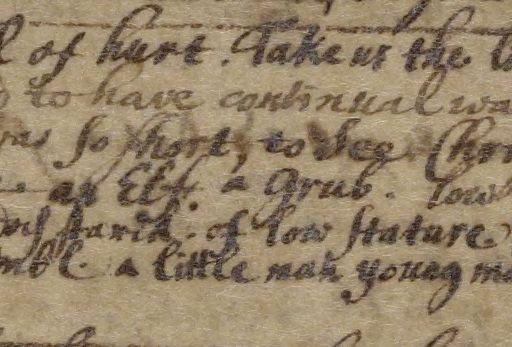 of hurt. Take us the
to have continual wa
so short, to see Chri
an Elf. a Grub. low
of low stature
a little man young ma